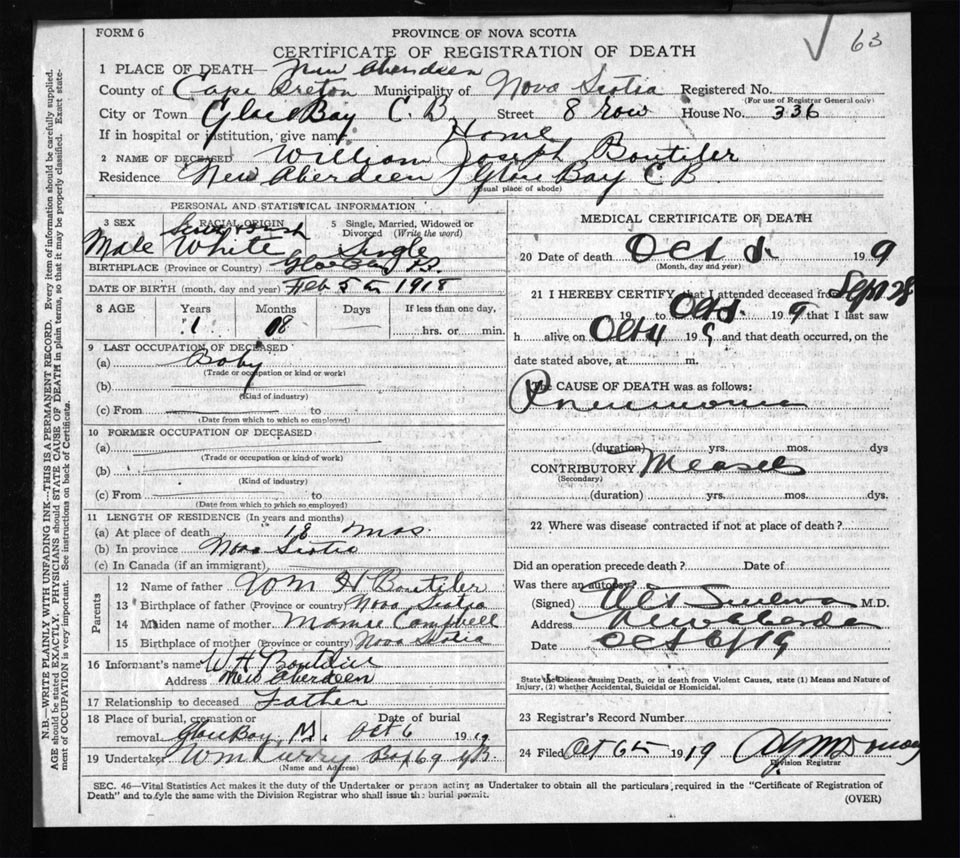 FORM 6
PROVINCE OF NOVA SCOTIA
63
CERTIFICATE OF REGISTRATION OF DEATH
1 PLACE OF DEATH— New Aberdeen
County of Cape Breton Municipality of Nova Scotia Registered No.
(For use of Registrar General only)
City or Town Glace Bay C. B. Street 8 row House No. 336
If in hospital or institution, give name Home
2 NAME OF DECEASED William Joseph Boutilier
Residence New Aberdeen Glace Bay C B
(Usual place of abode)
PERSONAL AND STATISTICAL INFORMATION
3 SEX RACIAL ORIGIN 5 Single, Married, Widowed or
Divorced (Write the word)
Male White Single
BIRTHPLACE (Province or Country) Glace Bay
DATE OF BIRTH (month, day and year) Feb 5th 1918
8 AGE Years Months Days If less than one day,
1 18 hrs. or min.
9 LAST OCCUPATION OF DECEASED
(a) Baby
(Trade or occupation or kind or work)
(b)
(Kind of industry)
(c) From to
(Date from which to which so employed)
10 FORMER OCCUPATION OF DECEASED
(a)
(Trade or occupation or kind of work)
(b)
(Kind of industry)
(c) From to
(Date from which to which so employed)
11 LENGTH OF RESIDENCE (In years and months)
(a) At place of death 18 mos.
(b) In province Nova Scotia
(c) In Canada (if an immigrant)
Parents
12 Name of father Wm H Boutilier
13 Birthplace of father (Province or country) Nova Scotia
14 Maiden name of mother Campbell
15 Birthplace of mother (Province or country) Nova Scotia
16 Informant's name W. H. Boutilier
Address New Aberdeen
17 Relationship to deceased Father
18 Place of burial, cremation or Date of burial
removal Glace Bay, Oct 6 1919
19 Undertaker Wm Curry Box 69 GB
(Name and Address)
MEDICAL CERTIFICATE OF DEATH
20 Date of death Oct 5. 19
(Month, day and year)
21 I HEREBY CERTIFY, that I attended deceased from Sept 28
19 to Oct 5. 19 9 that I last saw
h alive on Oct 4 19 9 and that death occurred, on the
date stated above, at m.
The CAUSE OF DEATH was as follows:
Pneumonia
(duration) yrs. mos. dys
CONTRIBUTORY Measels
(Secondary)
(duration) yrs. mos. dys.
22 Where was disease contracted if not at place of death?
Did an operation precede death? Date of
Was there an autopsy?
(Signed) M.D.
Address New Aberdeen
Date Oct 6/19
State the Disease causing Death, or in death from Violent Causes, state (1) Means and Nature of
Injury, (2) whether Accidental, Suicidal or Homicidal.
23 Registrar's Record Number
24 Filed Oct 6th 1919
Division Registrar
SEC. 46—Vital Statistics Act makes it the duty of the Undertaker or person acting as Undertaker to obtain all the particulars required in the "Certificate of Registration of
Death" and to fyle the same with the Division Registrar who shall issue the burial permit.
(OVER)
N.B.—WRITE PLAINLY WITH UNFADING INK—THIS IS A PERMANENT RECORD. Every item of information should be carefully supplied.
AGE should be stated EXACTLY. PHYSICIANS should STATE CAUSE OF DEATH in plain terms, so that it may be properly classified. Exact state-
ment of OCCUPATION is very important. See instructions on back of Certificate.